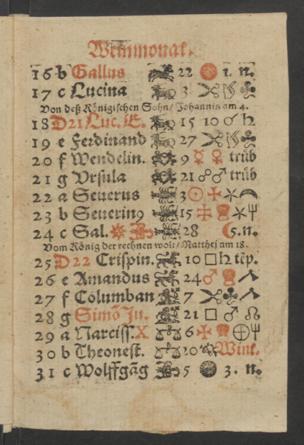 Weinmonat.
16 b Gallus 22 1. n.
17 c Lucina 3
Von deß Königischen Sohn/ Johannis am 4.
18 D 21/Luc. E. 15 10 ♂ ♄
19 e Ferdinand 27
20 f Wendelin. 9 ☿ ♀ trüb
21 g Vrsula 21 ☍ ♂ trüb
22 a Seuerus 3 ☉
23 b Seuerin9 15
24 c Sal. 28 5. n.
Vom König der rechnen wolt/ Matthej am 18.
25 D 22 Crispin. 10 □ ♄ tēp.
26 e Amandus 24 ♂
27 f Columban 7
28 g Simō Ju. 21 □ ♂ ☊
29 a Narciss. X 6
30 b Theonest. 20 Wint.
31 c Wolffgāg 5 3. n.